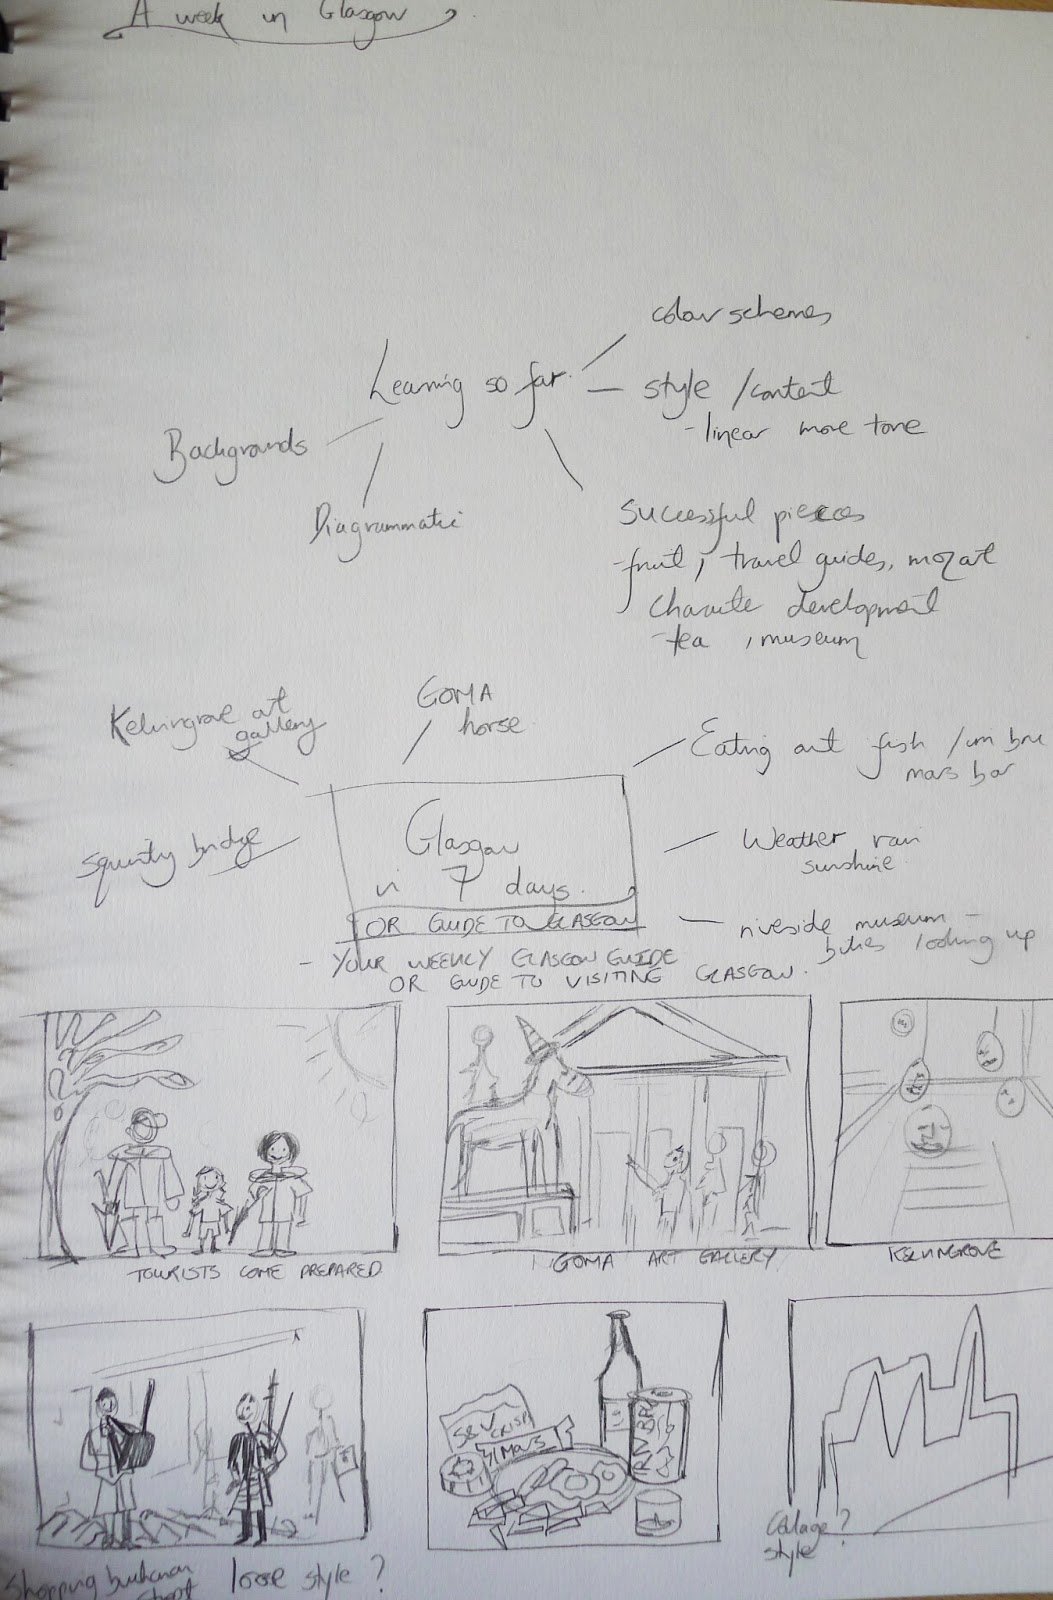 A week in Glasgow
colour schemes
Learning so far
style / content
- linear more tone
Backgrounds
Diagrammatic
Successful pieces
- fruit, travel guides, mozart
Characte development
- tea, museum
Kelvingrove art
gallery
GOMA
horse
Eating out fish / irn bru
mars bar
Squinty bridge
Glasgow
in 7 days.
OR GUIDE TO GLASGOW
Weather rain
sunshine
riverside museum -
bikes looking up
- YOUR WEEKLY GLASGOW GUIDE
OR GUIDE TO VISITING GLASGOW.
TOURISTS COME PREPARED
GOMA ART GALLERY
KELVINGROVE
S&V
CRISP
Mars
IRN BRU
Collage?
style
Shopping buchanan
street
loose style ?